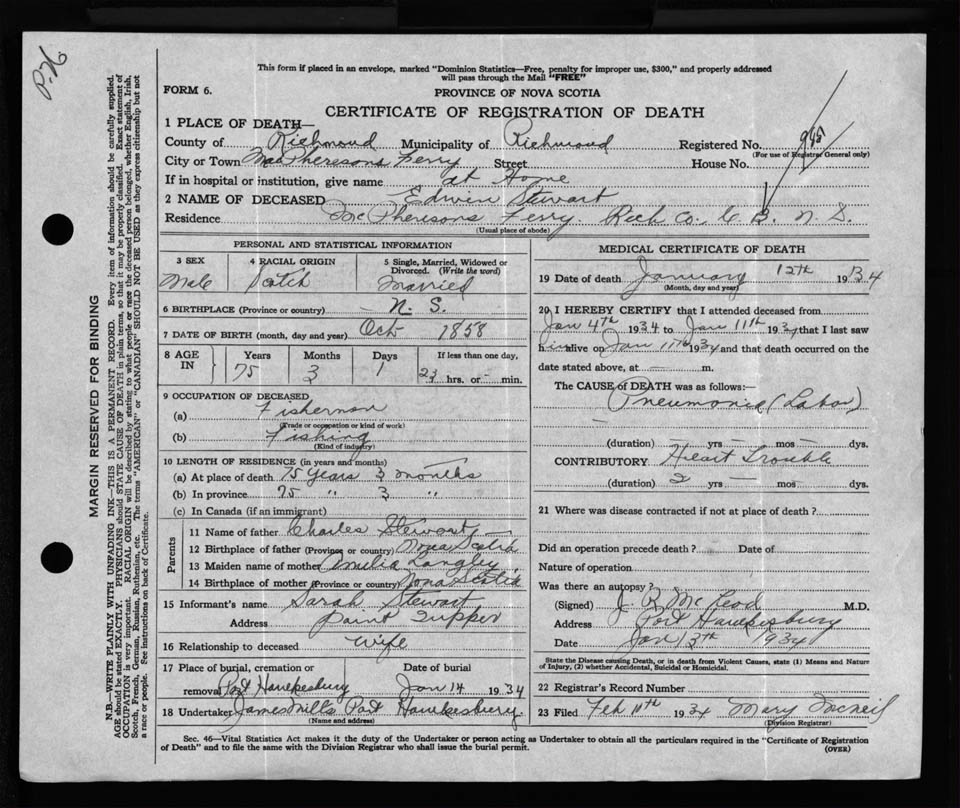 P.H.
This form if placed in an envelope, marked "Dominion Statistics—Free, penalty for improper use, $300," and properly addressed
will pass through the Mail "FREE"
FORM 6.
PROVINCE OF NOVA SCOTIA
CERTIFICATE OF REGISTRATION OF DEATH
1 PLACE OF DEATH—
County of Richmond Municipality of Richmond Registered No. 945
(For use of Registrar General only)
City or Town MacPheresons Ferry Street House No.
If in hospital or institution, give name at Home
2 NAME OF DECEASED Edwin Stewart
Residence McPheresons Ferry. Rich Co. C. B. N. S.
(Usual place of abode)
PERSONAL AND STATISTICAL INFORMATION
3 SEX Male
4 RACIAL ORIGIN Scotch
5 Single, Married, Widowed or Divorced. (Write the word) Married
6 BIRTHPLACE (Province or country) N. S.
7 DATE OF BIRTH (month, day and year) Oct 1858
8 AGE IN Years 75 Months 3 Days 1 If less than one day, 23 hrs. or - min.
9 OCCUPATION OF DECEASED
(a) Fisherman
(Trade or occupation or kind of work)
(b) Fishing
(Kind of industry)
10 LENGTH OF RESIDENCE (in years and months)
(a) At place of death 75 Years 3 months
(b) In province 75 " 3 "
(c) In Canada (if an immigrant)
Parents
11 Name of father Charles Stewart
12 Birthplace of father (Province or country) Nova Scotia
13 Maiden name of mother Emelia Langley
14 Birthplace of mother (Province or country) Nova Scotia
15 Informant's name Sarah Stewart
Address Point Tupper
16 Relationship to deceased Wife
17 Place of burial, cremation or removal Port Hawkesbury Date of burial Jan 14 1934
18 Undertaker James Mills Port Hawkesbury
(Name and address)
MEDICAL CERTIFICATE OF DEATH
19 Date of death January 12th 1934
(Month, day and year)
20 I HEREBY CERTIFY that I attended deceased from
Jan 4th 1934 to Jan 11th 1934 that I last saw
him alive on Jan 11th 1934 and that death occurred on the
date stated above, at — m.
The CAUSE of DEATH was as follows:—
Pneumonia (Lobor)
—
(duration) — yrs — mos — dys.
CONTRIBUTORY Heart Trouble
(duration) 2 yrs — mos — dys.
21 Where was disease contracted if not at place of death?
Did an operation precede death? Date of
Nature of operation
Was there an autopsy?
(Signed) J. R. McLeod M.D.
Address Port Hawkesbury
Date Jan 13th 1934
State the Disease causing Death, or in death from Violent Causes, state (1) Means and Nature
of Injury, (2) whether Accidental, Suicidal or Homicidal.
22 Registrar's Record Number
23 Filed Feb 10th 1934 Mary McNeil
(Division Registrar)
Sec. 46—Vital Statistics Act makes it the duty of the Undertaker or person acting as Undertaker to obtain all the particulars required in the "Certificate of Registration
of Death" and to file the same with the Division Registrar who shall issue the burial permit.
(OVER)
MARGIN RESERVED FOR BINDING
N.B.—WRITE PLAINLY WITH UNFADING INK—THIS IS A PERMANENT RECORD. Every item of information should be carefully supplied.
AGE should be stated EXACTLY. PHYSICIANS should STATE CAUSE OF DEATH in plain terms, so that it may be properly classified. Exact statement of
OCCUPATION is very important. RACIAL ORIGIN will be described by stating to what people or race the deceased person belonged, whether English, Irish,
Scotch, French, German, Russian, Ruthenian, etc. The terms "AMERICAN" or "CANADIAN" SHOULD NOT BE USED as they express citizenship but not
a race or people. See instructions on back of Certificate.